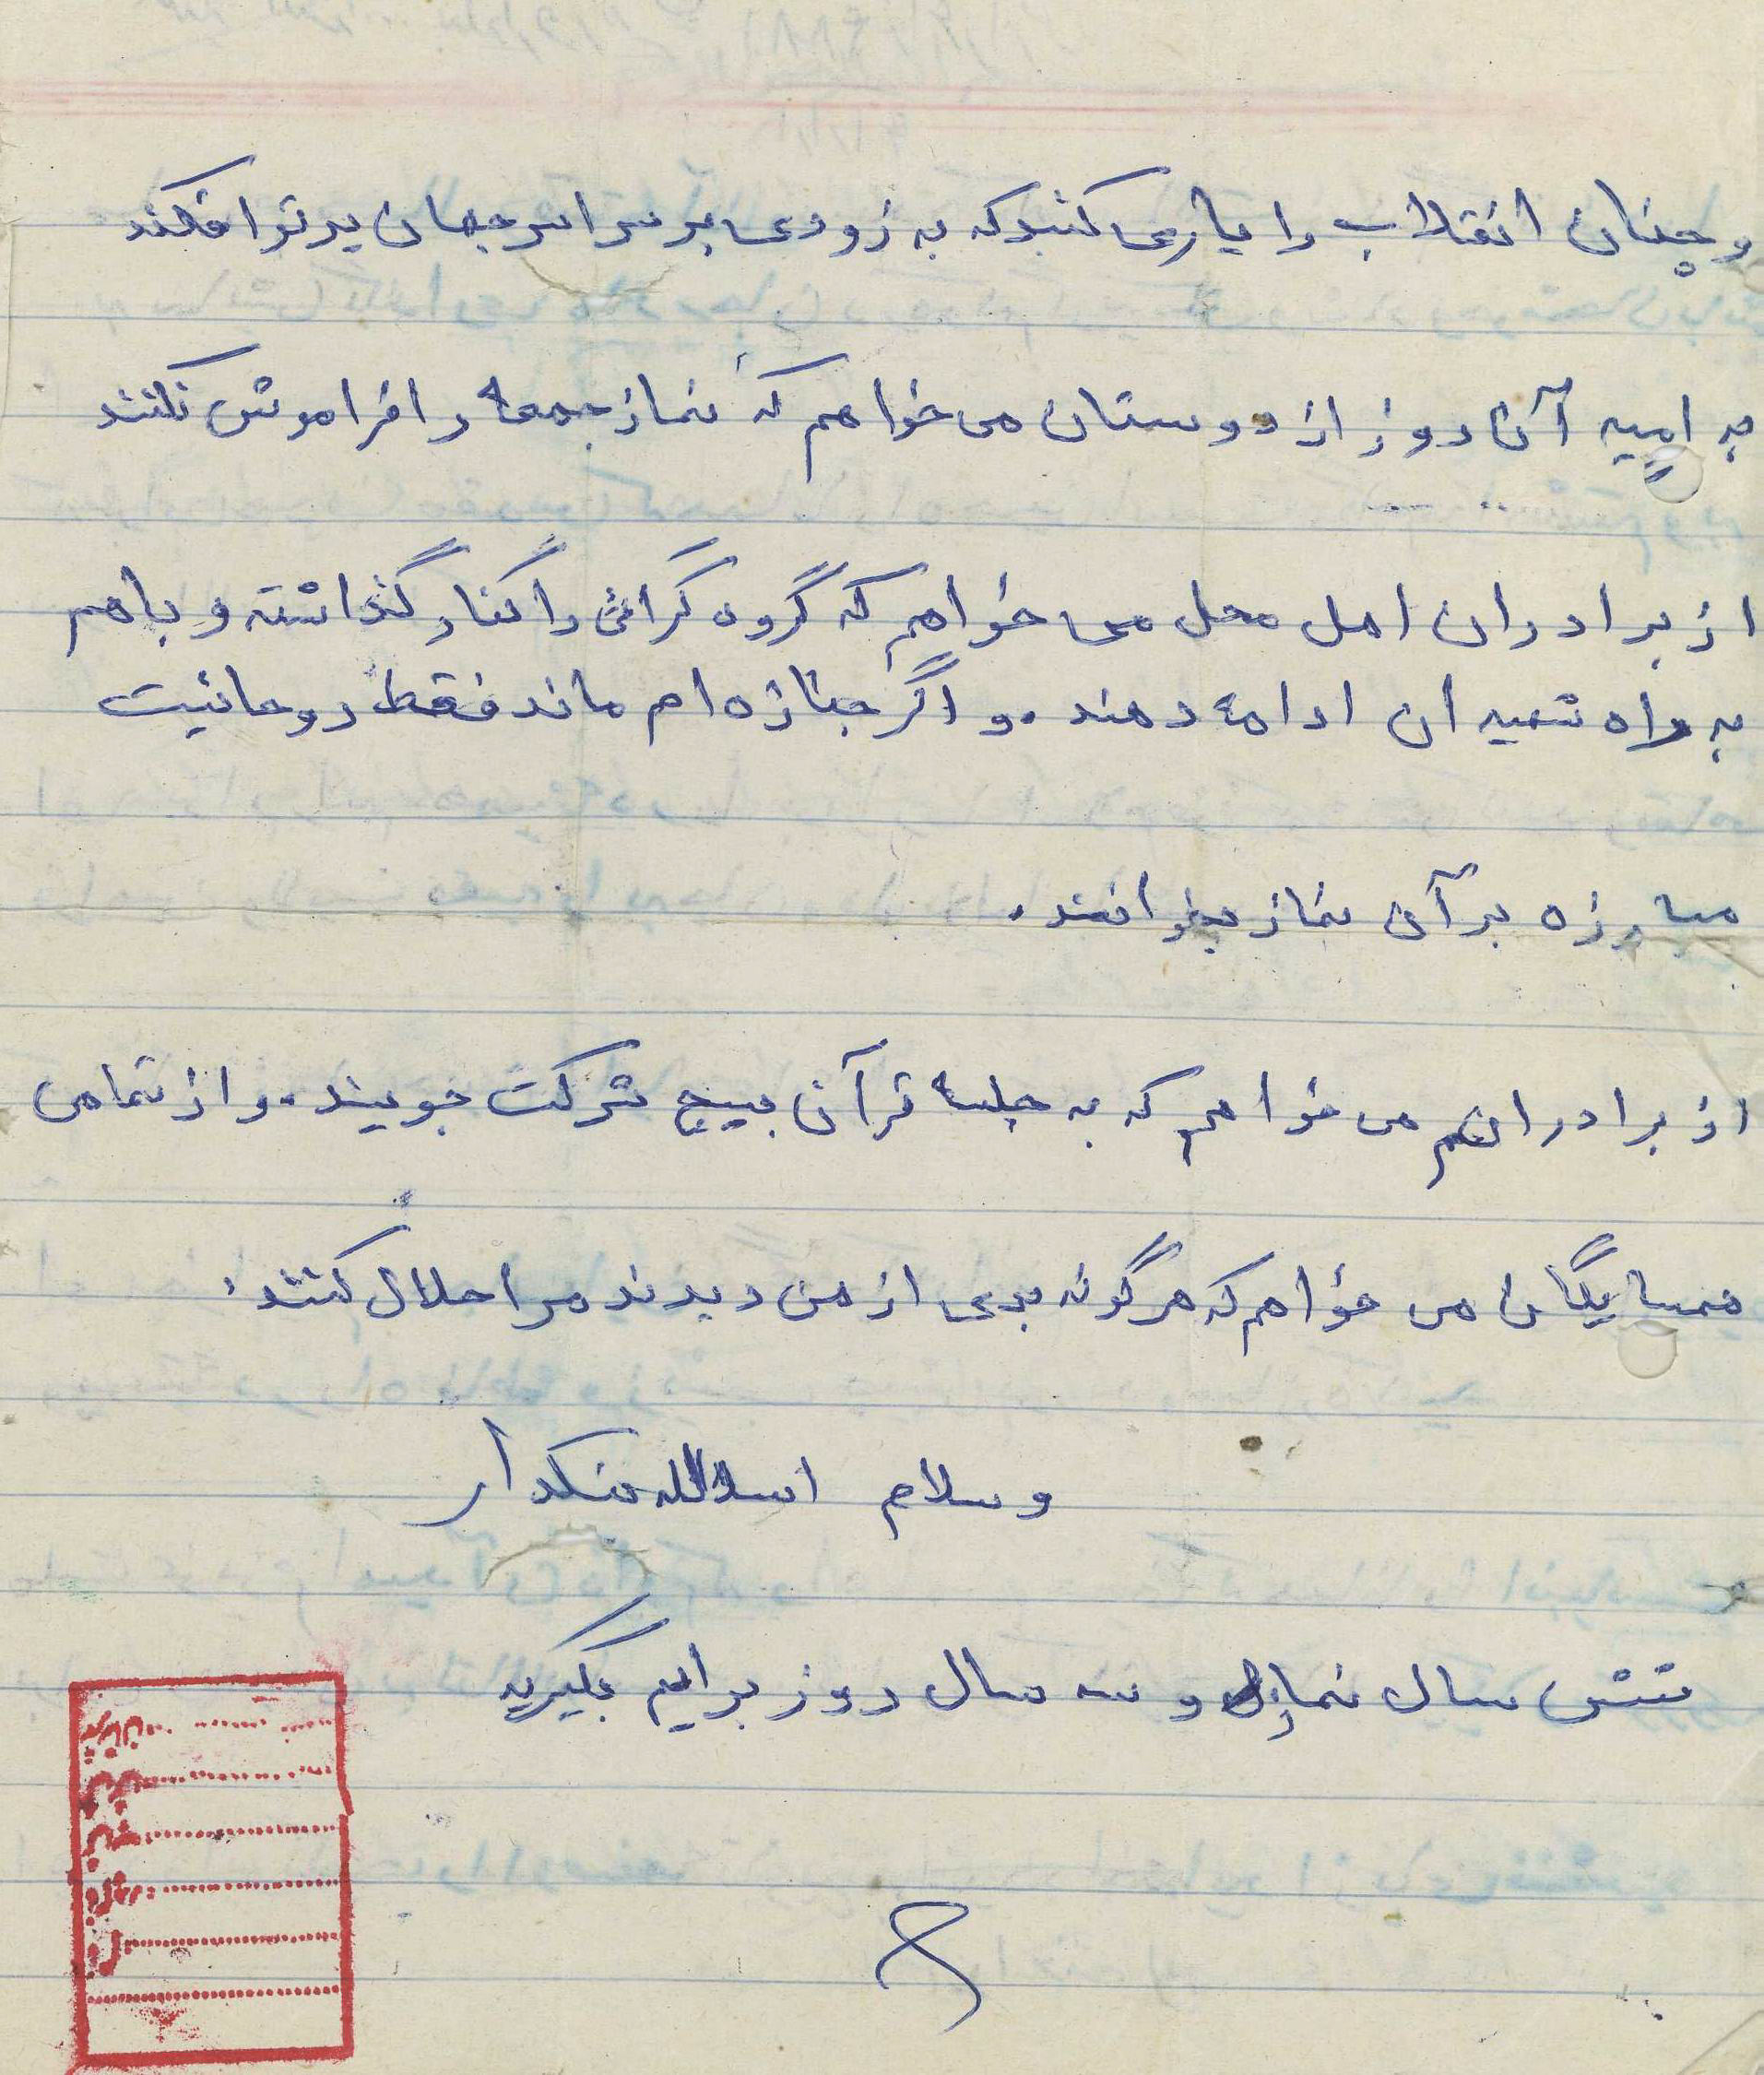 و چنان انقلاب را یاری کنید که به زودی بر سراسر جهان پرتو افکند
به امید آن روز از دوستان می خواهم که نماز جمعه را فراموش نکنند
از برادران اهل محل می خواهم که گروه گرائی را کنار گذاشته و باهم
به راه شهیدان ادامه دهند. و اگر جنازه ام ماند فقط روحانیت
مبارزه بر آن نماز بخوانند.
از برادرانم می خواهم که به جلسه قرآن بسیج شرکت جویند. و از تمامی
همسایگان می خواهم که هرگونه بدی از من دیدند مرا حلال کنند.
وسلام اسدالله
شش سال نماز و سه سال روز برایم بگیرید